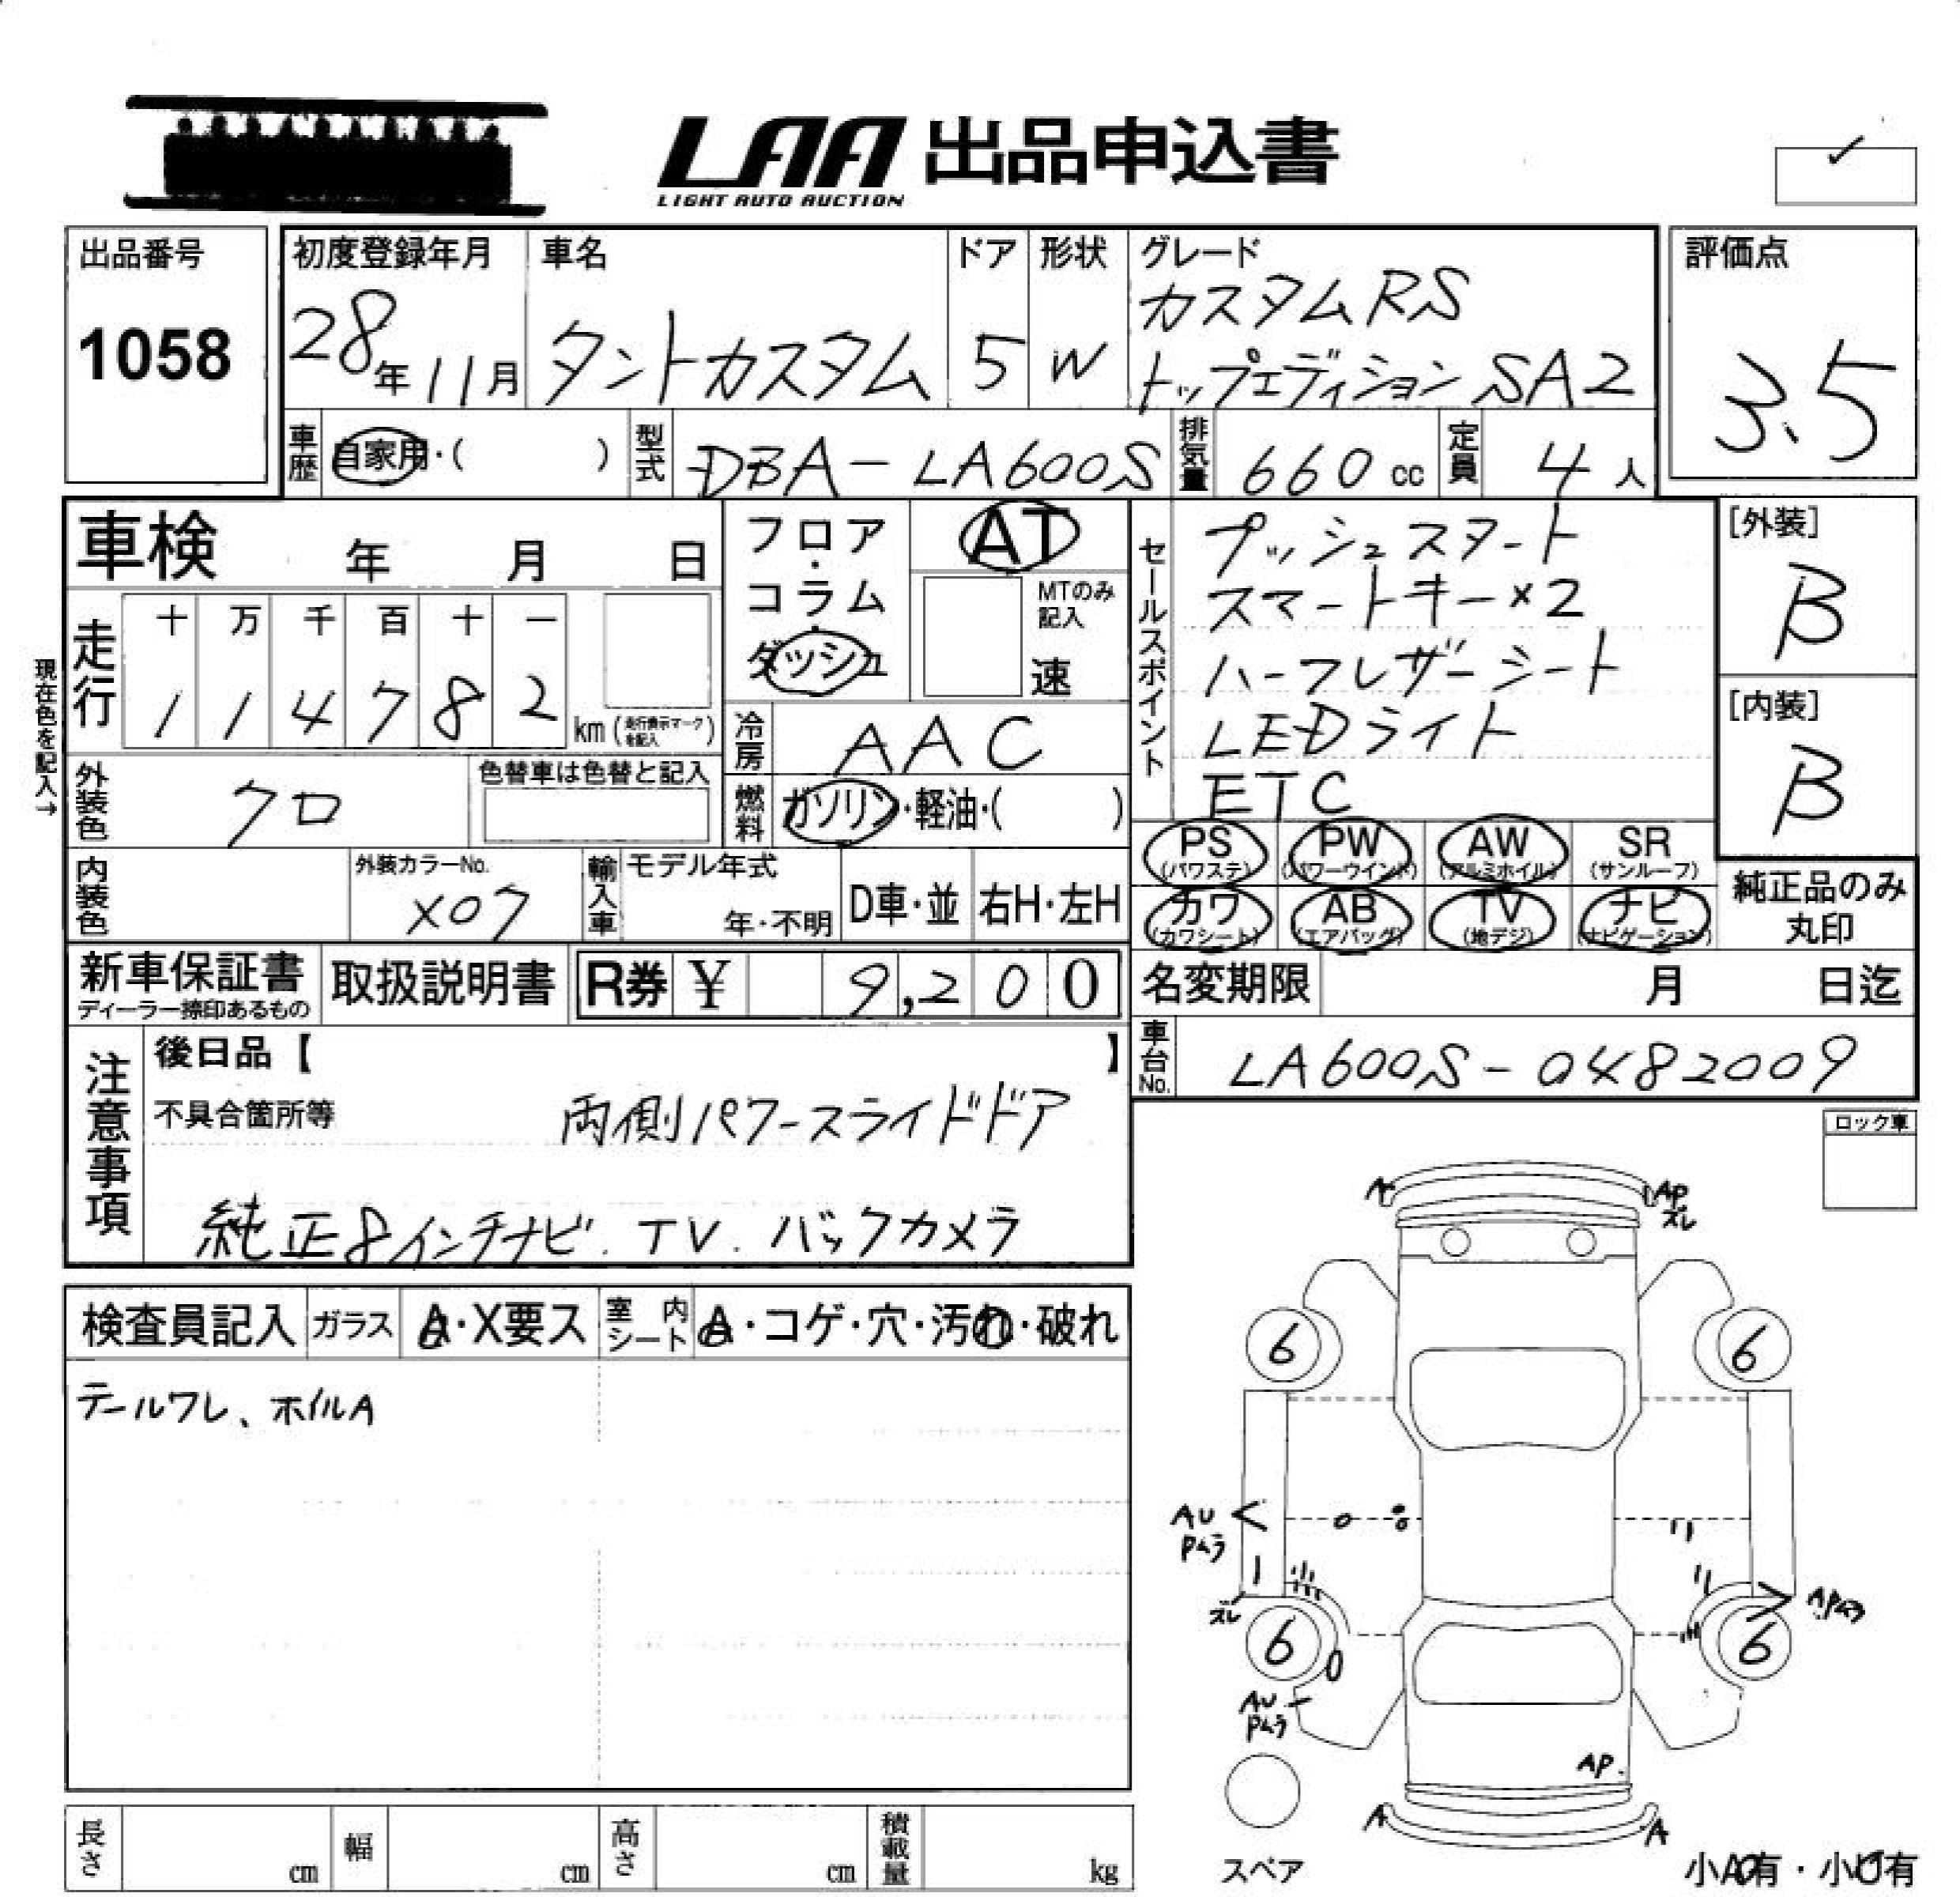 LAA 出品申込書
LIGHT AUTO AUCTION
出品番号
1058
初度登録年月
28年11月
車名
タントカスタム
ドア
5
形状
W
グレード
カスタムRS
トップエディションSA2
評価点
3.5
車歴
自家用・( )
型式
DBA-LA600S
排気量
660 cc
定員
4人
車検 年 月 日
フロア・コラム・ダッシュ
AT
MTのみ記入
速
セールスポイント
プッシュスタート
スマートキー×2
ハーフレザーシート
LEDライト
ETC
[外装]
B
[内装]
B
現在色を記入→
走行
十 万 千 百 十 一
1 1 4 7 8 2 km (走行表示マークを記入)
冷房
AAC
外装色
クロ
色替車は色替と記入
燃料
ガソリン・軽油・( )
PS
(パワステ)
PW
(パワーウインド)
AW
(アルミホイル)
SR
(サンルーフ)
カワ
(カワシート)
AB
(エアバッグ)
TV
(地デジ)
ナビ
(ナビゲーション)
純正品のみ
丸印
内装色
外装カラーNo.
X07
輸入車
モデル年式
年・不明
D車・並
右H・左H
新車保証書
ディーラー捺印あるもの
取扱説明書
R券 ¥ 9,200
名変期限 月 日迄
車台No.
LA600S-0482009
注意事項
後日品【 】
不具合箇所等
両側パワースライドドア
純正8インチナビ.TV.バックカメラ
ロック車
検査員記入
ガラス
A・X要ス
室内シート
A・コゲ・穴・汚れ・破れ
テールワレ、ホイルA
A
AP
ズレ
6
6
AU
Pムラ
ズレ
APムラ
6
6
AU
Pムラ
AP.
A
A
スペア
小A有・小U有
長さ cm
幅 cm
高さ cm
積載量 kg